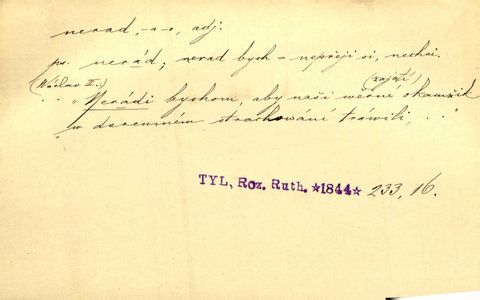 nerad, -a -o, adj.
ps. nerád; nerad bych = nepřeji si, nechci.
(Václav II.:) (zajatí)
.. "Nerádi bychom, aby naši wěrní okamžik
w daremném strachowání tráwili, .."
TYL, Roz. Ruth. *1844* 233, 16.